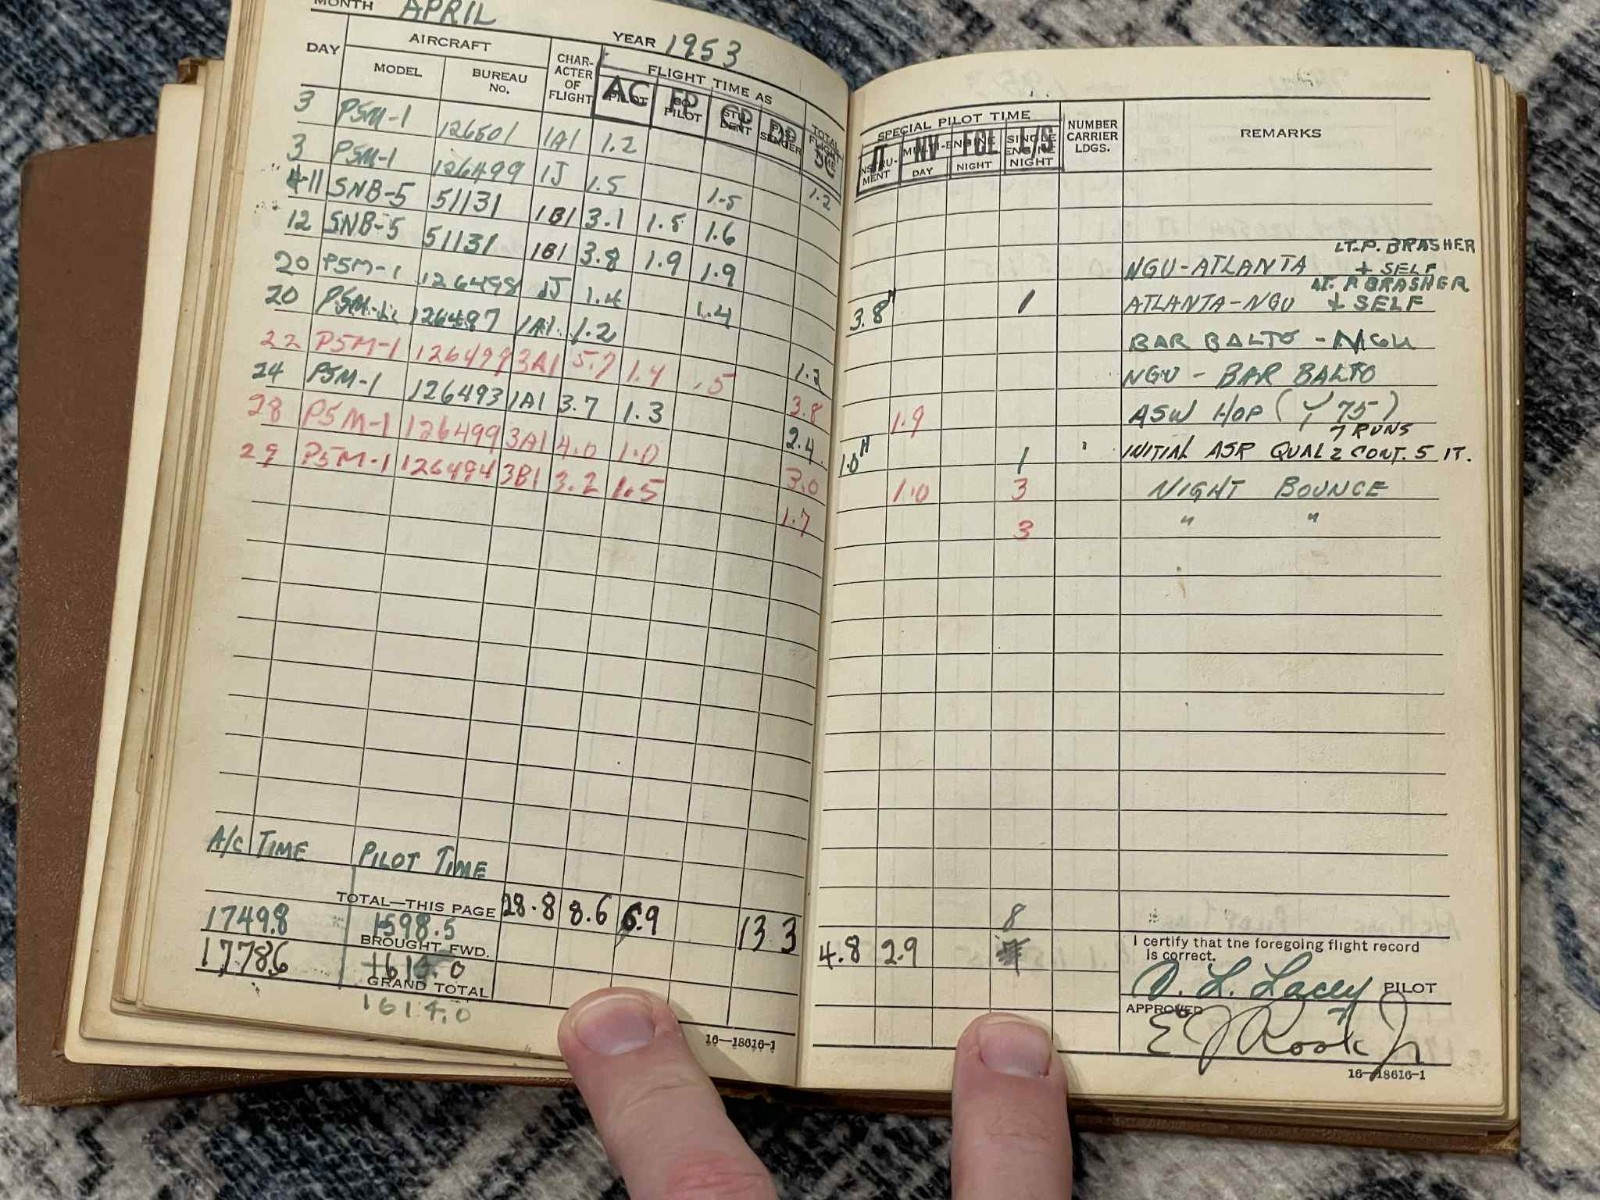 MONTH APRIL YEAR 1953
DAY AIRCRAFT CHARACTER OF FLIGHT FLIGHT TIME AS
MODEL BUREAU No. AC PILOT CO PILOT STUDENT PASSENGER TOTAL FLIGHT TIME
3 P5M-1 126501 1A1 1.2 1.2
3 P5M-1 126499 1J 1.5 1.5
4-11 SNB-5 51131 1B1 3.1 1.5 1.6
12 SNB-5 51131 1B1 3.8 1.9 1.9
20 P5M-1 126498 1J 1.4 1.4
20 P5M-1 126487 1A1 1.2 1.2
22 P5M-1 126499 3A1 5.7 1.4 .5 3.8
24 P5M-1 126493 1A1 3.7 1.3 2.4
28 P5M-1 126499 3A1 4.0 1.0 3.0
29 P5M-1 126494 3B1 3.2 1.5 1.7
A/C TIME PILOT TIME
TOTAL—THIS PAGE 28.8 8.6 6.9 13.3
1749.8 1598.5
BROUGHT FWD.
1778.6
GRAND TOTAL
1614.0
16—18616-1
SPECIAL PILOT TIME NUMBER CARRIER LDGS. REMARKS
INSTRUMENT MULTI-ENGINE DAY NIGHT SINGLE ENGINE NIGHT
IT NV FCL L/S
LT. P. BRASHER
NGU-ATLANTA + SELF
LT. P BRASHER
3.8 H 1 ATLANTA-NGU + SELF
BAR BALTO - NGU
NGU - BAR BALTO
1.9 ASW HOP
7 RUNS
1.0 H 1 INITIAL ASR QUAL 2 CONT. 5 IT.
1.0 3 NIGHT BOUNCE
3 " "
8
4.8 2.9
I certify that the foregoing flight record is correct.
O. L. Lacey PILOT
APPROVED
E J Rook Jr
16—18616-1